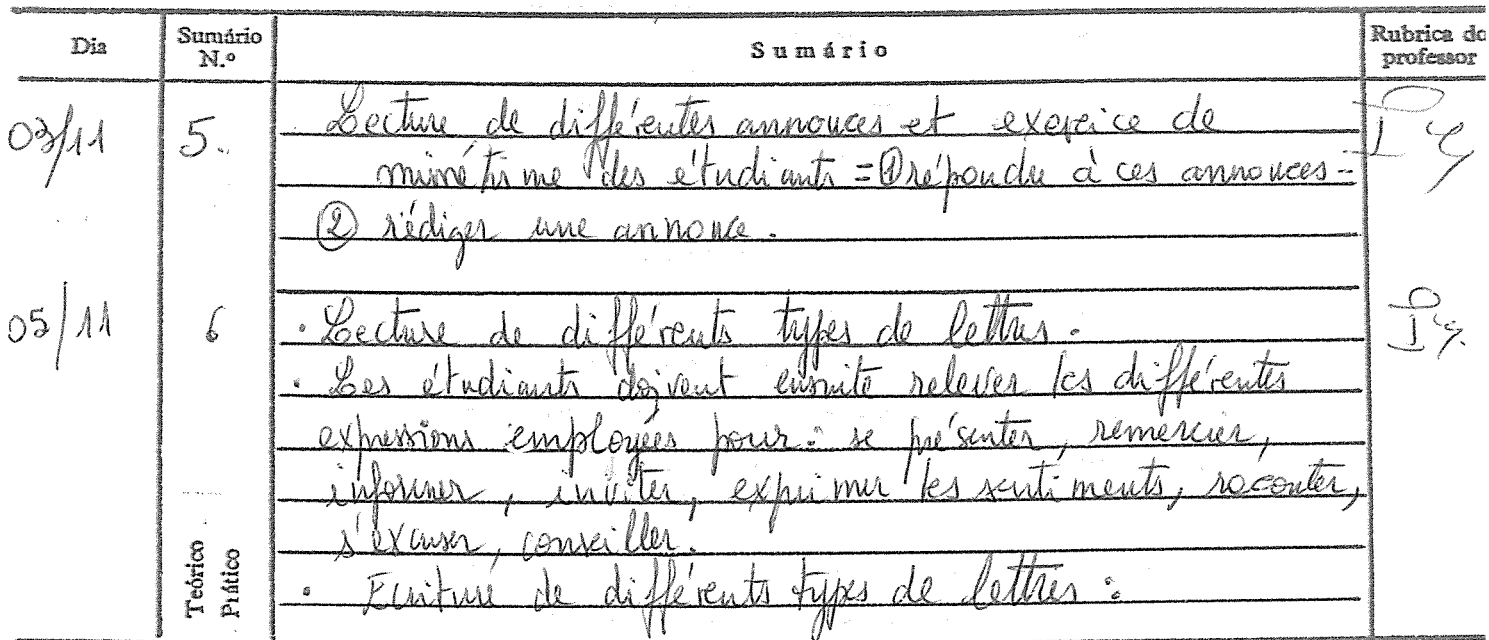 Dia Sumário N.º Sumário Rubrica do professor
03/11 5. Lecture de différentes annonces et exercice de
mimétisme des étudiants = ① répondre à ces annonces -
② rédiger une annonce.
05/11 6 . Lecture de différents types de lettres.
. Les étudiants doivent ensuite relever les différentes
expressions employées pour : se présenter, remercier,
informer, inviter, exprimer les sentiments, raconter,
s'excuser, conseiller.
Teórico Prático . Ecriture de différents types de lettres :